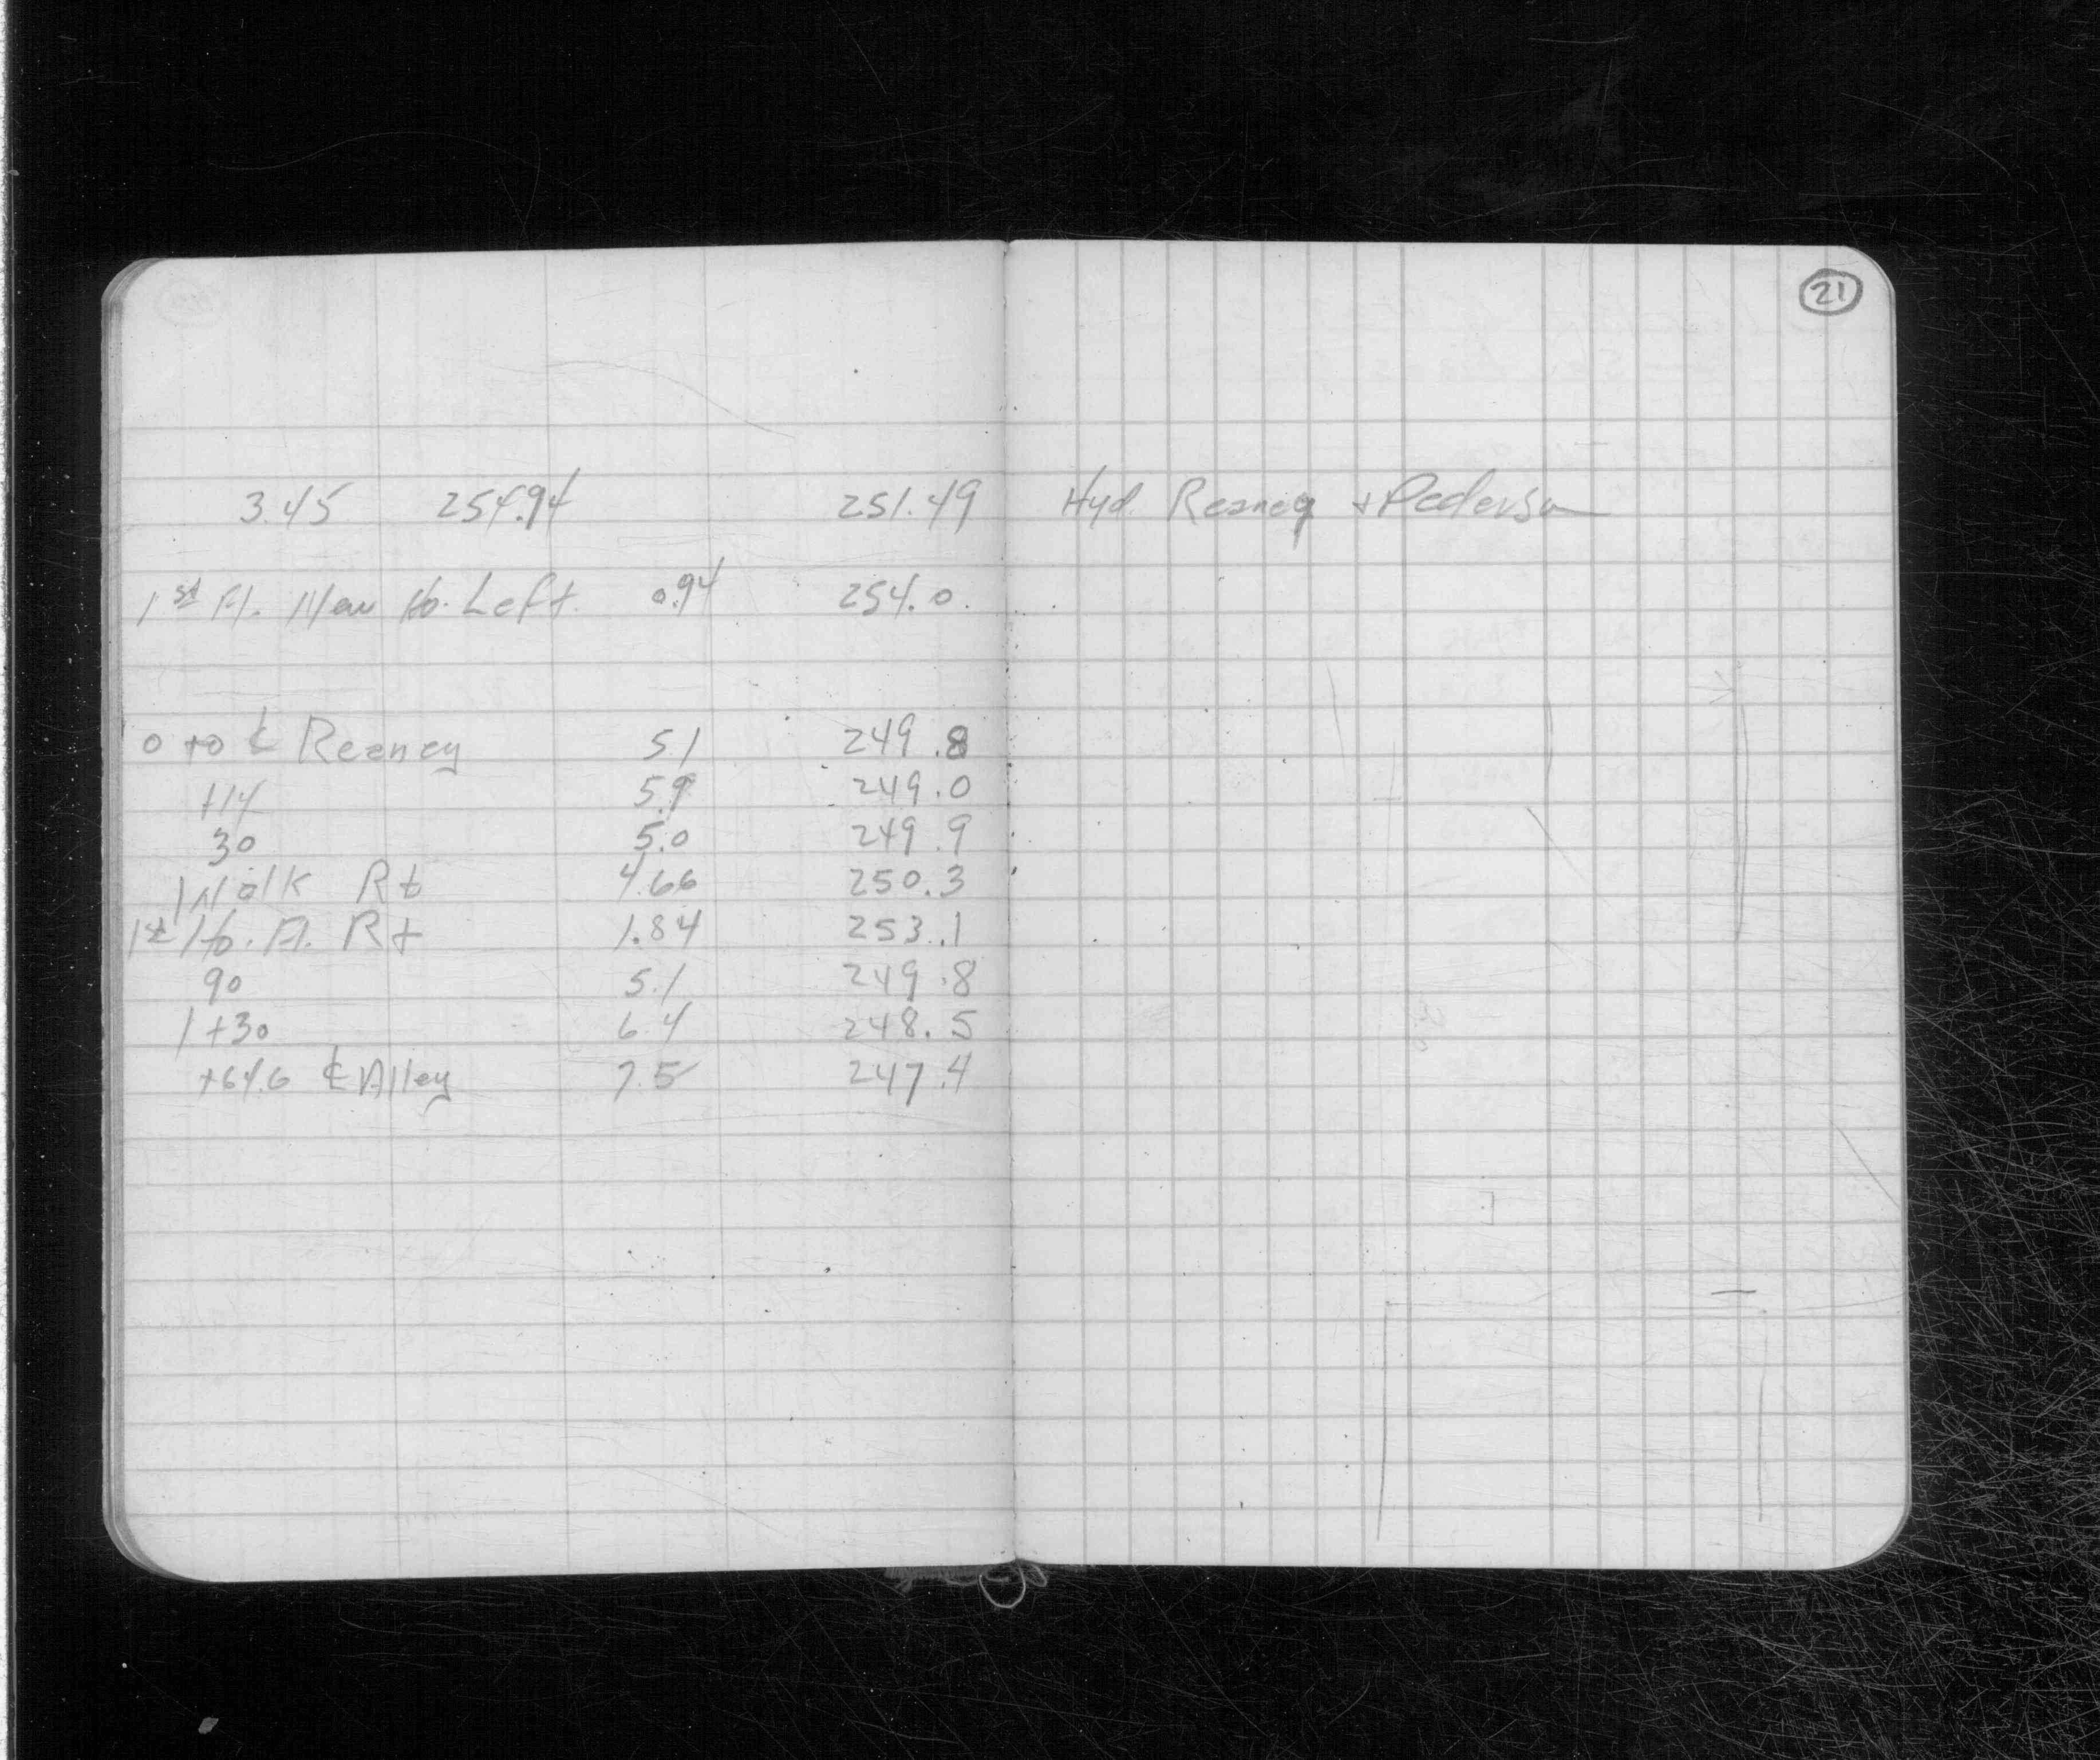 21
3.45 254.94 251.49 Hyd. Reaney + Pederson
1st Fl. New Ho. Left. 0.94 254.0.
0+0 ℄ Reaney 51 249.8
+14 5.9 249.0
30 5.0 249.9
Walk Rt 4.66 250.3
1st Ho. Fl. Rt 1.84 253.1
90 5.1 249.8
1+30 6.4 248.5
+64.6 ℄ Alley 7.5 247.4